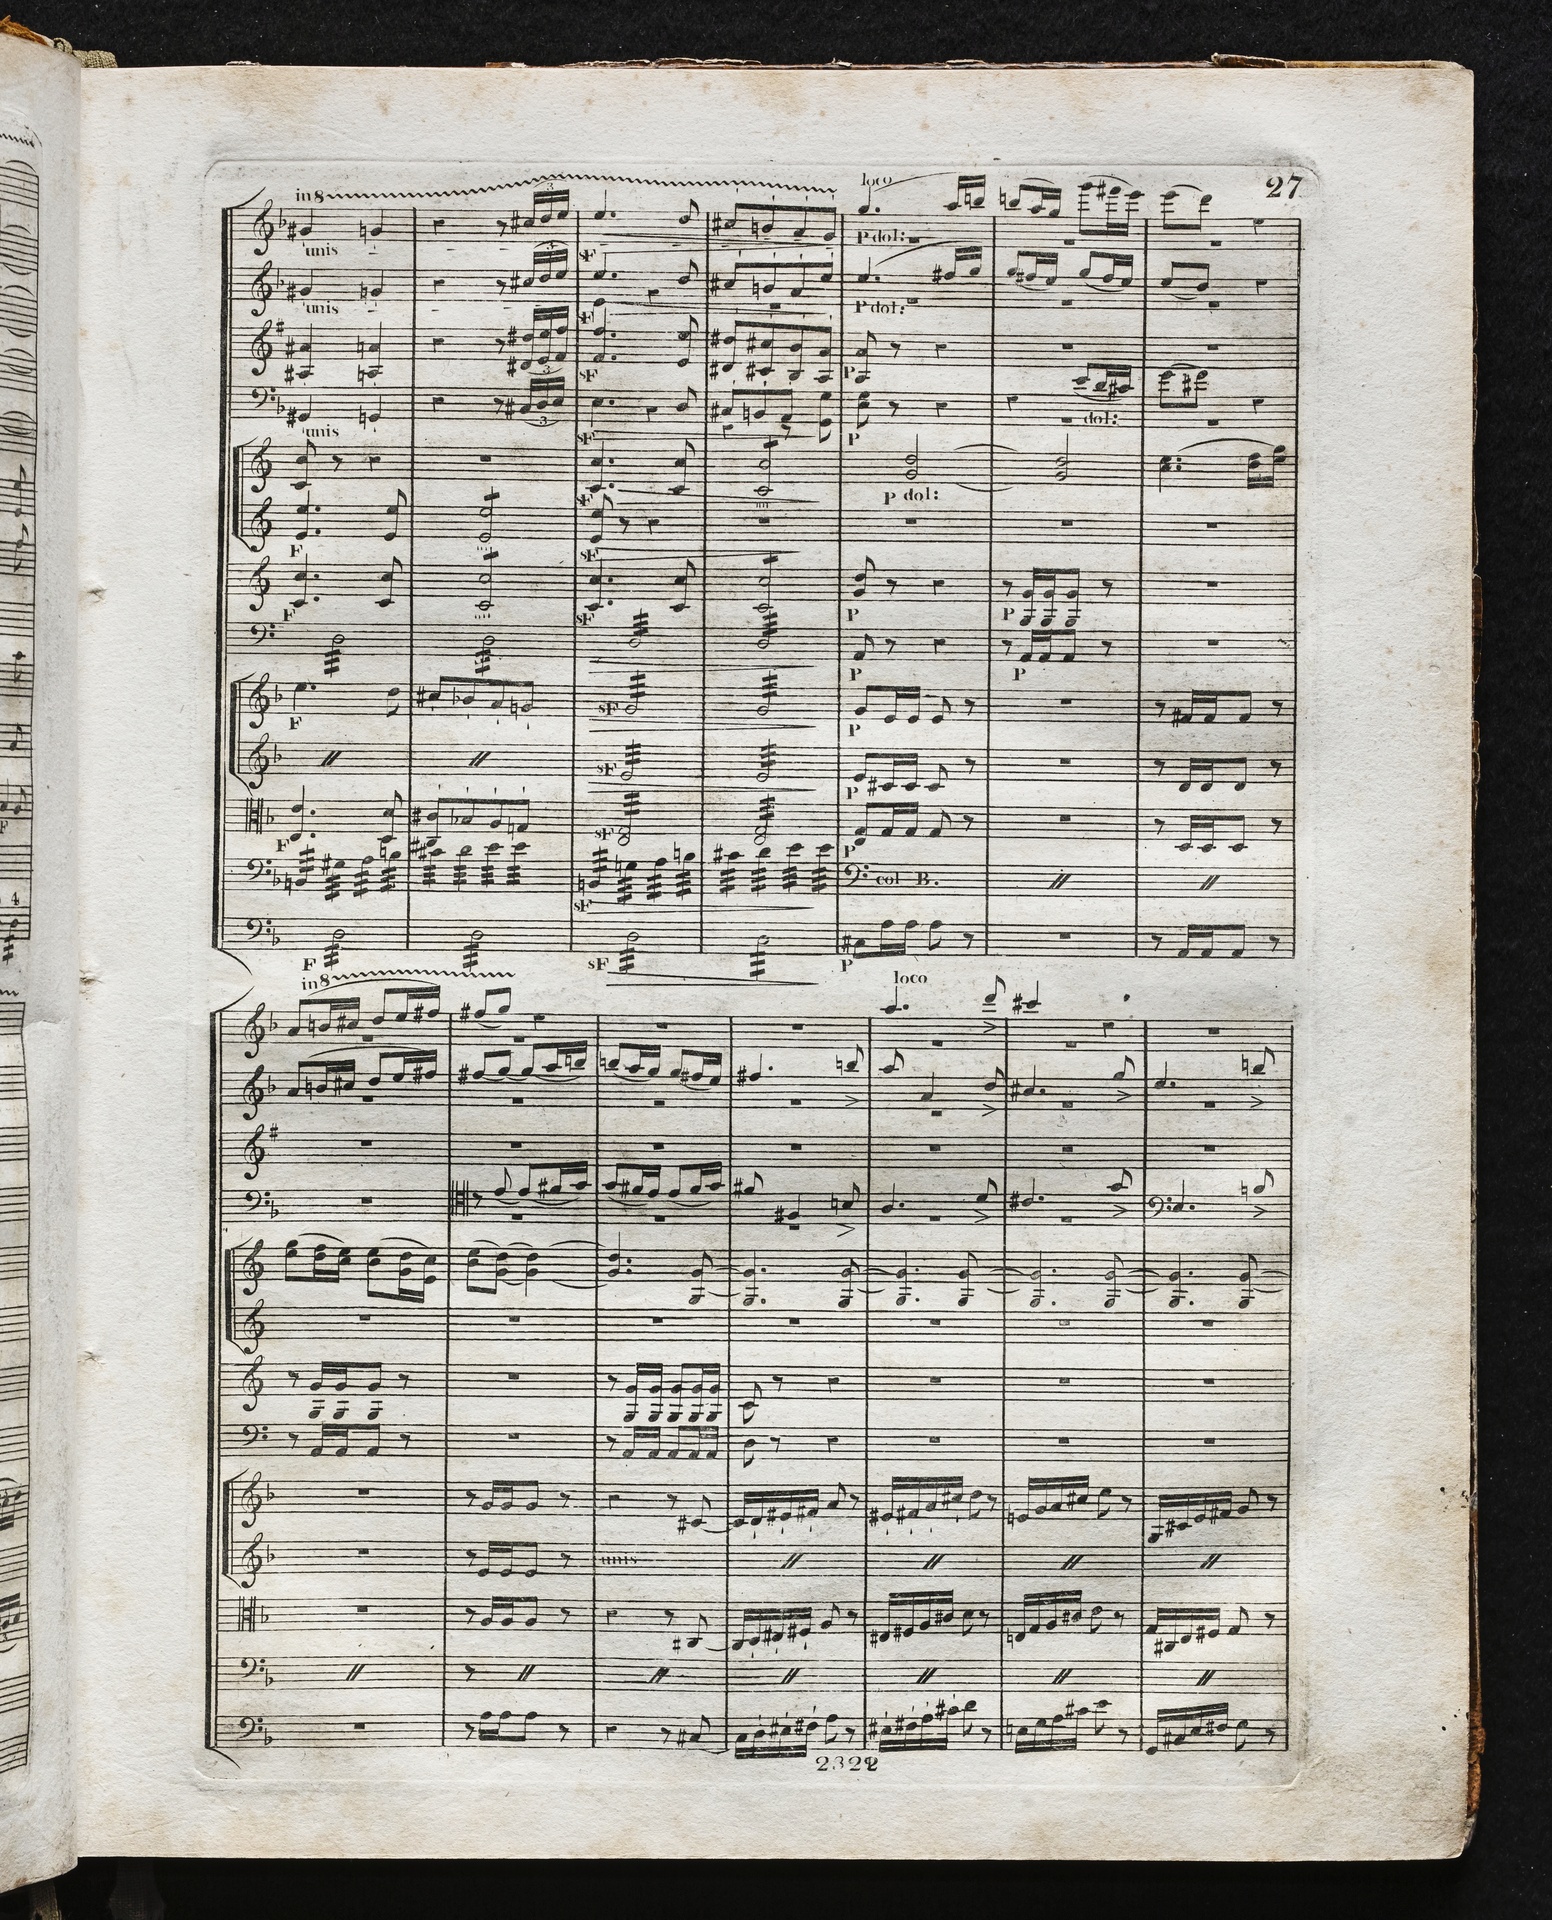 27
in 8 loco
3
unis P dol:
sF
3
unis P dol:
sF
3
sF P
3 dol:
unis sF P
sF P dol:
F sF
F sF P P
P P
F sF P
sF P
F sF P
sF col B.
F sF P
in 8 loco
unis
2322
4
F